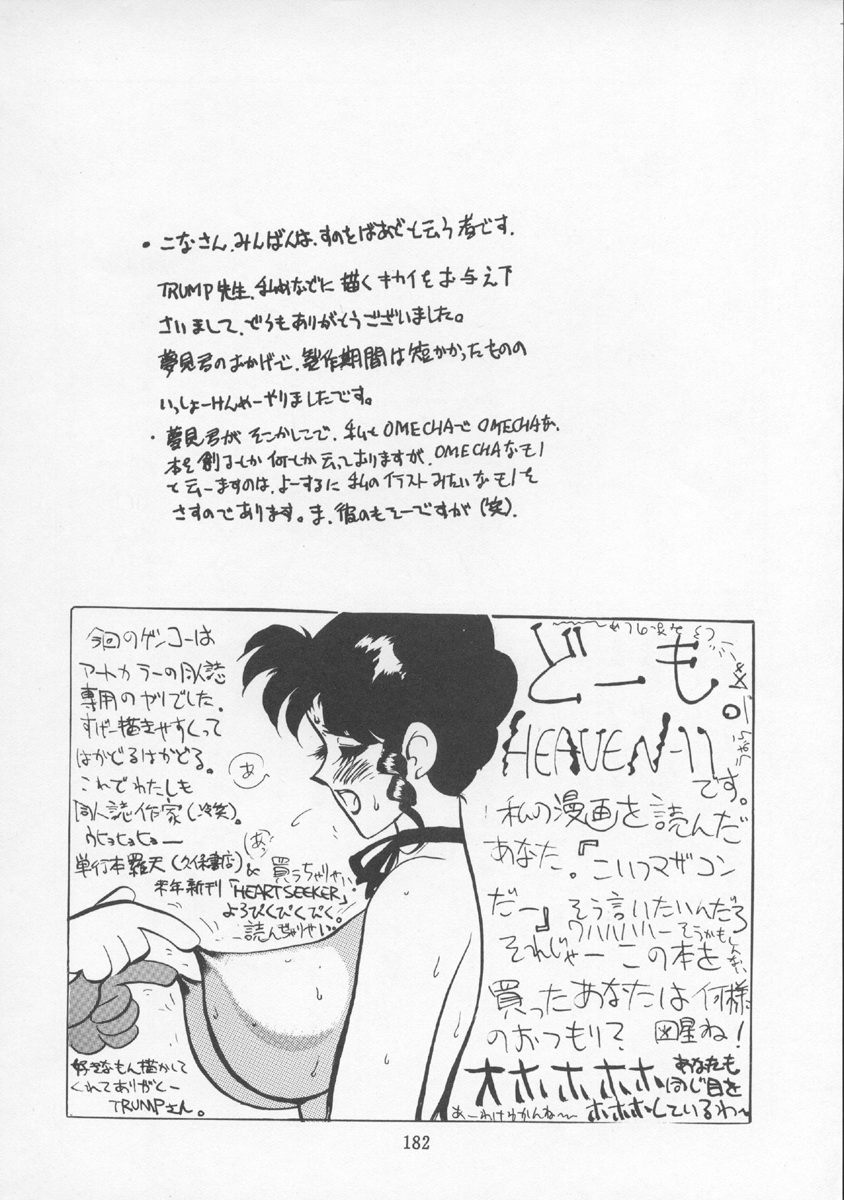 ・こなさん、みんばんは、すのをばあどと云う者です。
TRUMP先生、私めなどに描くキカイをお与え下
さいまして、どうもありがとうございました。
夢見君のおかげで、製作期間は短かかったものの
いっしょーけんめーやりましたです。
・夢見君が そこかしこで、私もOMECHAでOMECHAな、
本を創るしか何しか云っておりますが、OMECHAなモノ
と云ーますのは、よーするに 私のイラストみたいなモノを
さすのであります。ま、彼のもそーですが(笑)．
今回のゲンコーは
アートカラーの同人誌
専用のヤツでした。
すげー描きやすくって
はかどるはかどる。
これでわたしも
同人誌作家(冷笑)。
ウヒョヒョヒョー
単行本羅天(久保書店)
& 買っちゃりせい。
来年新刊「HEARTSEEKER」
よろぴくぴくぴく。
読んぢゃりせい。
あ
あっ
好きなもん描かして
くれてありがとー
TRUMPさん。
どーも。
HEAVEN-11
です。
私の漫画を読んだ
あなた。『こいつマザコン
だー』そう言いたいんだろ
ワハハハハー そうかもしんない
それじゃー この本を
買ったあなたは何様
のおつもり？ 図星ね！
オホホホホ
あなたも
同じ目を
ホホホしているわ〜